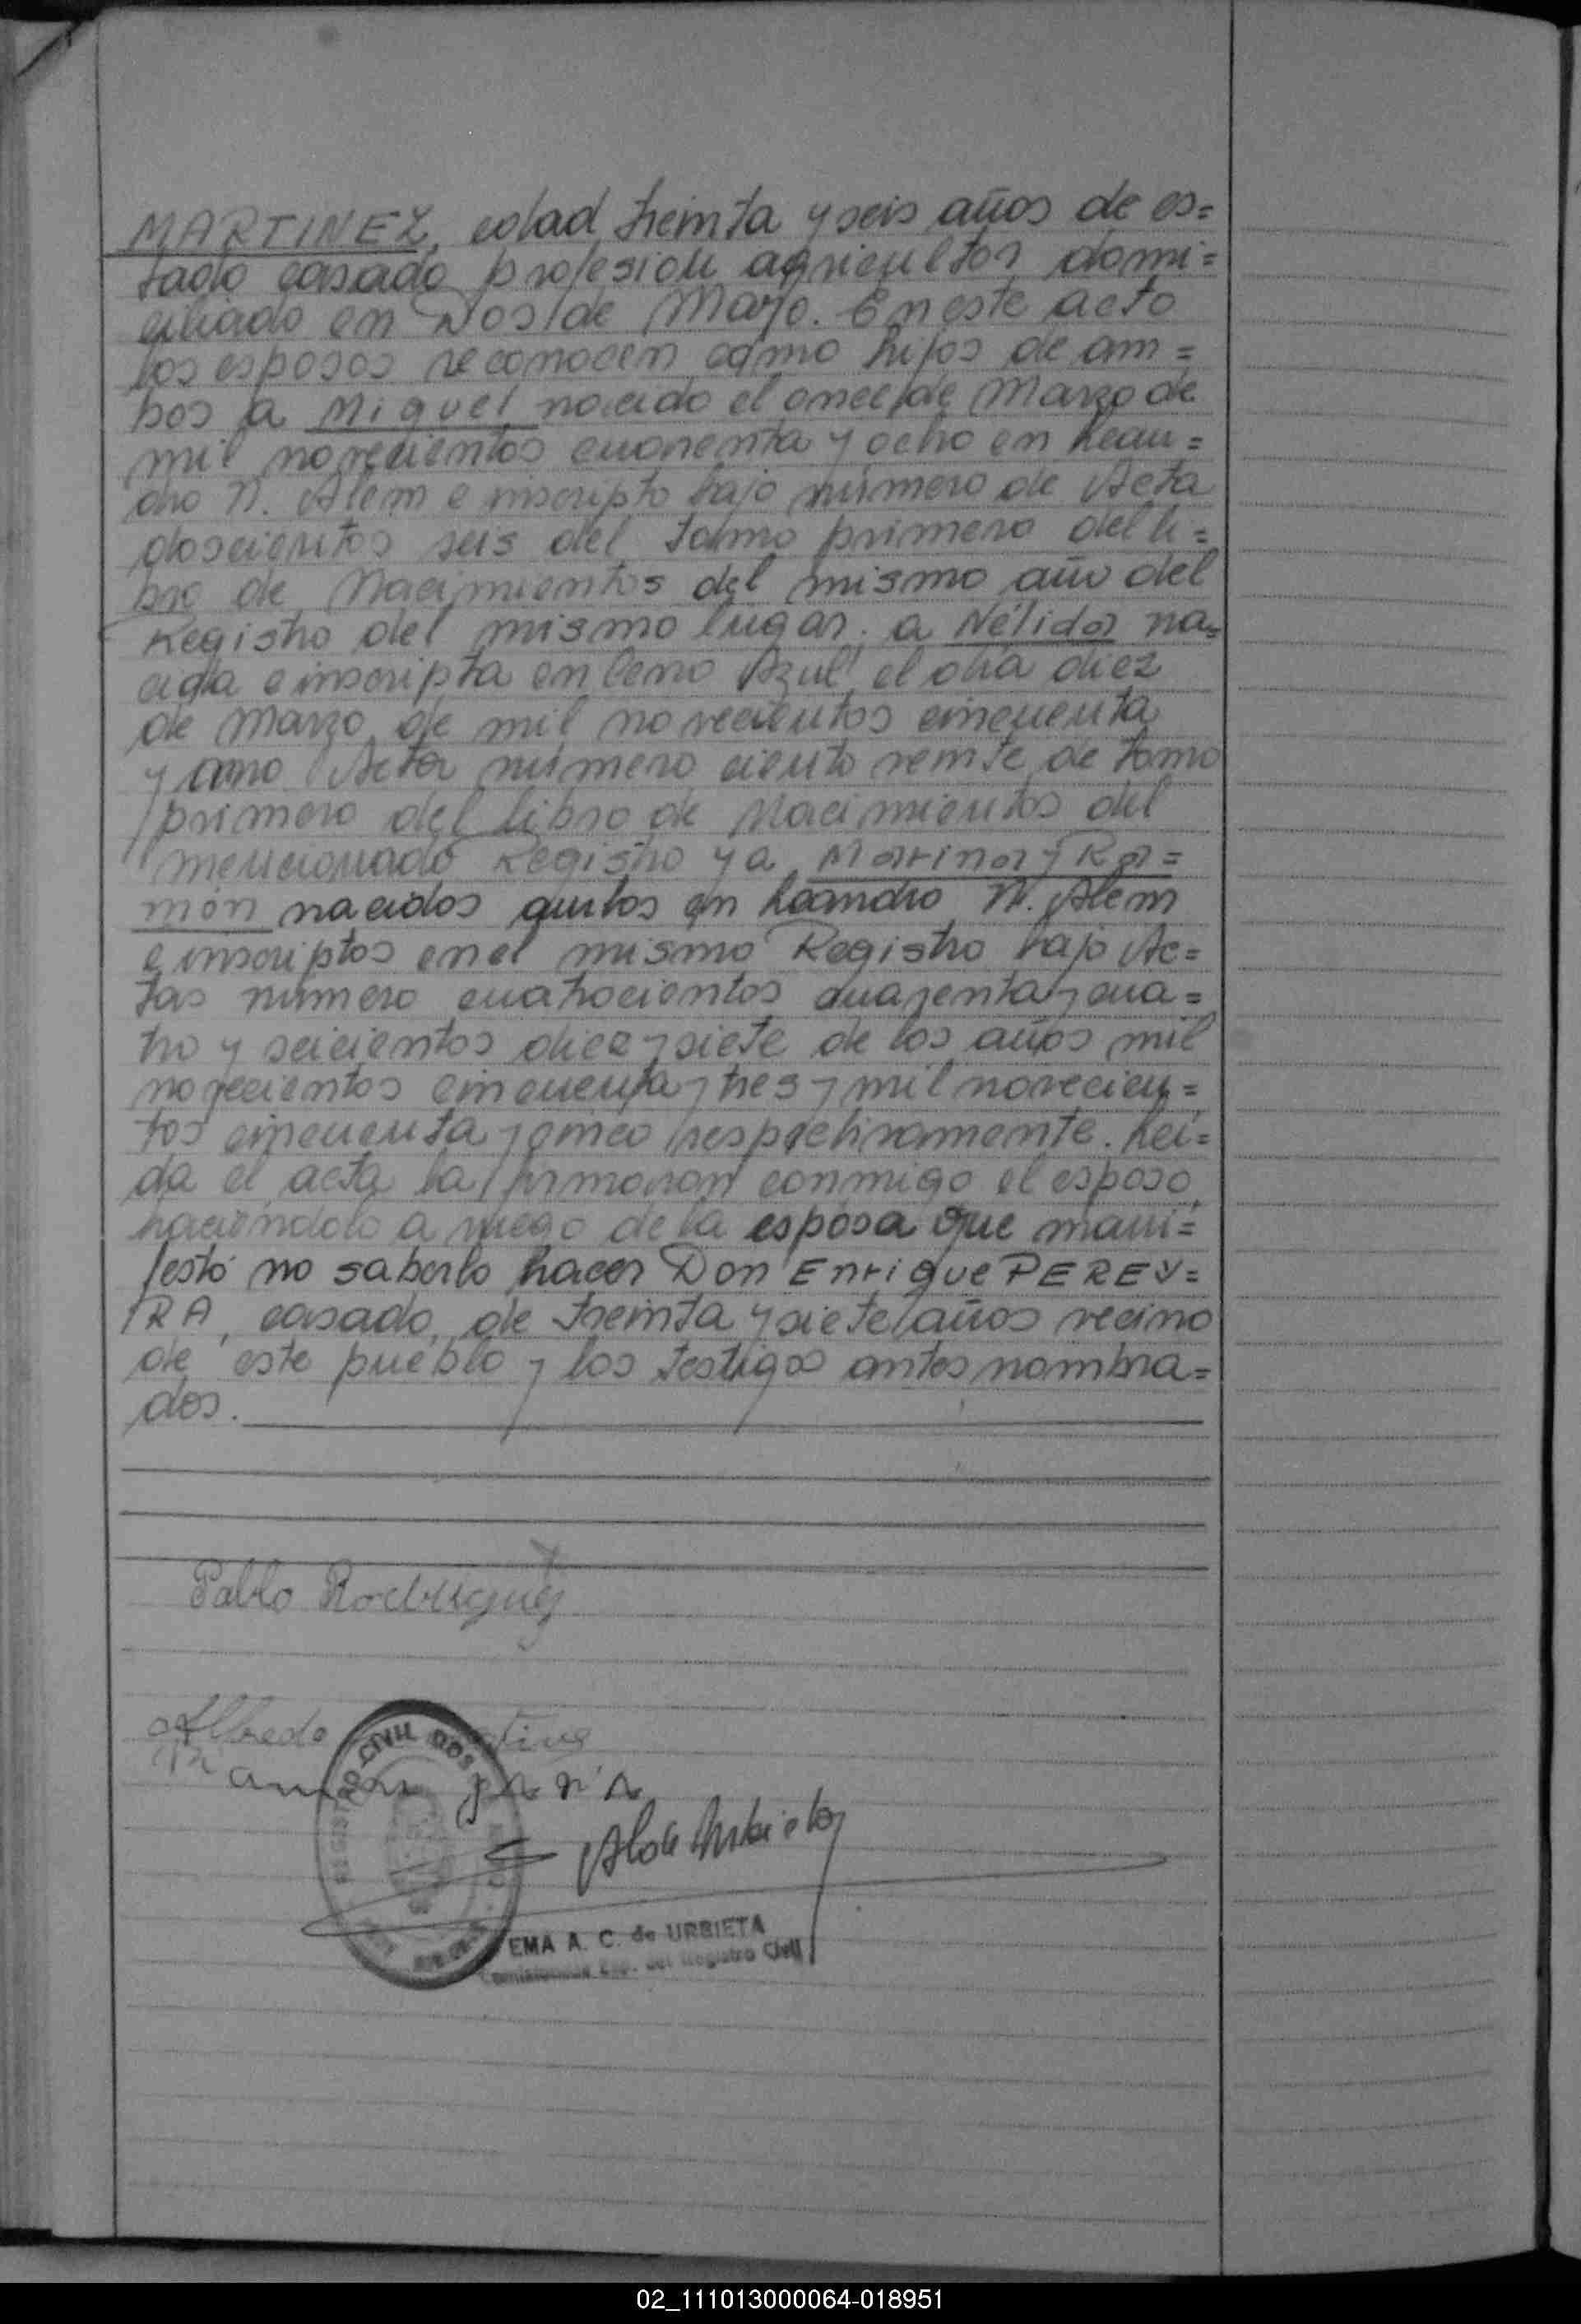 MARTINEZ, edad treinta y seis años de es=
tado casado profesion agricultor domi=
ciliado en Dos de Mayo. En este acto
los esposos reconocen como hijos de am=
bos a Miguel nacido el once de Marzo de
mil novecientos cuarenta y ocho en Lean=
dro N. Alem e inscripto bajo número de Acta
doscientos seis del tomo primero del li=
bro de Nacimientos del mismo año del
Registro del mismo lugar. a Nélida na=
cida e inscripta en Cerro Azul el día diez
de Marzo de mil novecientos cincuenta
y uno Acta número ciento veinte de tomo
primero del libro de Nacimientos del
mencionado Registro y a Marina y Ra=
món nacidos ambos en Leandro N. Alem
e inscriptos en el mismo Registro bajo Ac=
tas número cuatrocientos cuarenta y cua=
tro y seicientos diez y siete de los años mil
novecientos cincuenta y tres y mil novecien=
tos cincuenta y cinco respectivamente. Leí=
da el acta la firmaron conmigo el esposo
haciéndolo a ruego de la esposa que mani=
festó no saberlo hacer Don Enrique PEREY=
RA, casado, de treinta y siete años vecino
de este pueblo y los testigos antes nombra=
dos.
Pablo Rodriguez
Alfredo
Ramon
REGISTRO CIVIL DOS
EMA A. C. de URBIETA
del Registro Civil
02_111013000064-018951